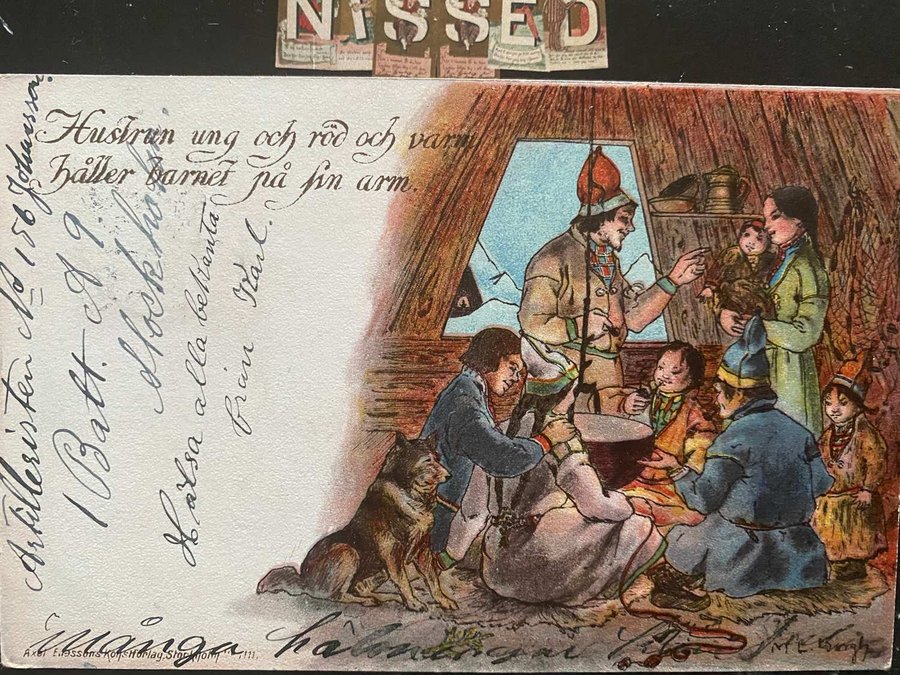 NISSED
Hustrun ung och röd och varm
håller barnet på sin arm.
Artilleristen No 156 Johansson
1 Batt. A 9.
Stockholm
Hälsa alla bekanta
från Karl.
Många hälsningar från
Axel Eliassons Konstförlag, Stockholm